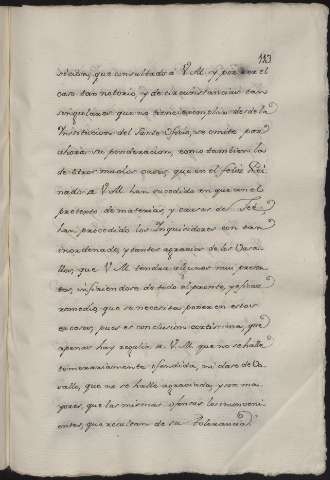 183
sicion, que consultado à V.M. y por ser el
caso tan notorio, y de circunstancias tan
singulares que no tiene exemplar desde la
Institucion del Santo Oficio, se omite por
ahora su ponderacion, como tambien la
de otros muchos casos, que en el feliz Rei
nado de V.M. han sucedido en que con el
pretexto de materias, y causas de Feê
han procedido los Inquisidores con tan
inordenado, y tantos agravios de los Vasa
llos, que V.M. tendra algunos muy presen
tes, infiriendose de todo el pronto, y eficaz
remedio, que se necesita poner en estos
excesos, pues es conclusion certissima, que
apenas hay regalia de V.M. que no se halle
temerariamente ofendida, ni clase de Va
sallo, que no se halle agraviada, y son ma
yores, que las mismas ofensas los inconveni
entes, que resultan de su Tolerancia